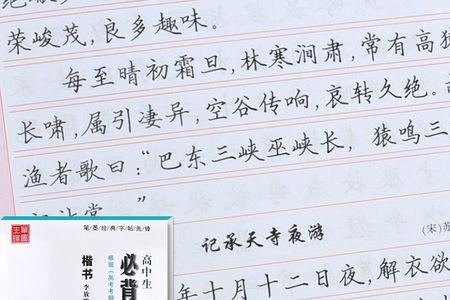 荣峻茂，良多趣味。
每至晴初霜旦，林寒涧肃，常有高猿
长啸，属引凄异，空谷传响，哀转久绝。
渔者歌曰：“巴东三峡巫峡长，猿鸣三
”
记承天寺夜游
(宋)苏
年十月十二日夜，解衣欲
笔墨经典字帖先锋
高中生
必背
楷书